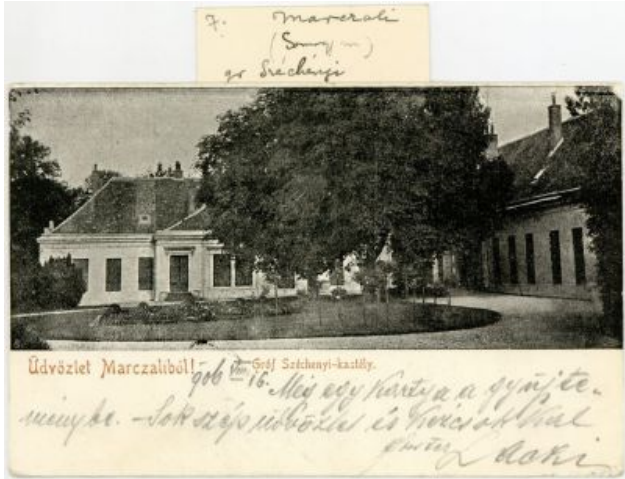 7. Marczali
(Somogy m)
gr Széchényi
Üdvözlet Marczaliból!
Gróf Széchenyi-kastély.
906 VIII 16. Még egy kártya a gyűjte-
ménybe. - Sok szép üdvözlet és
Laczi